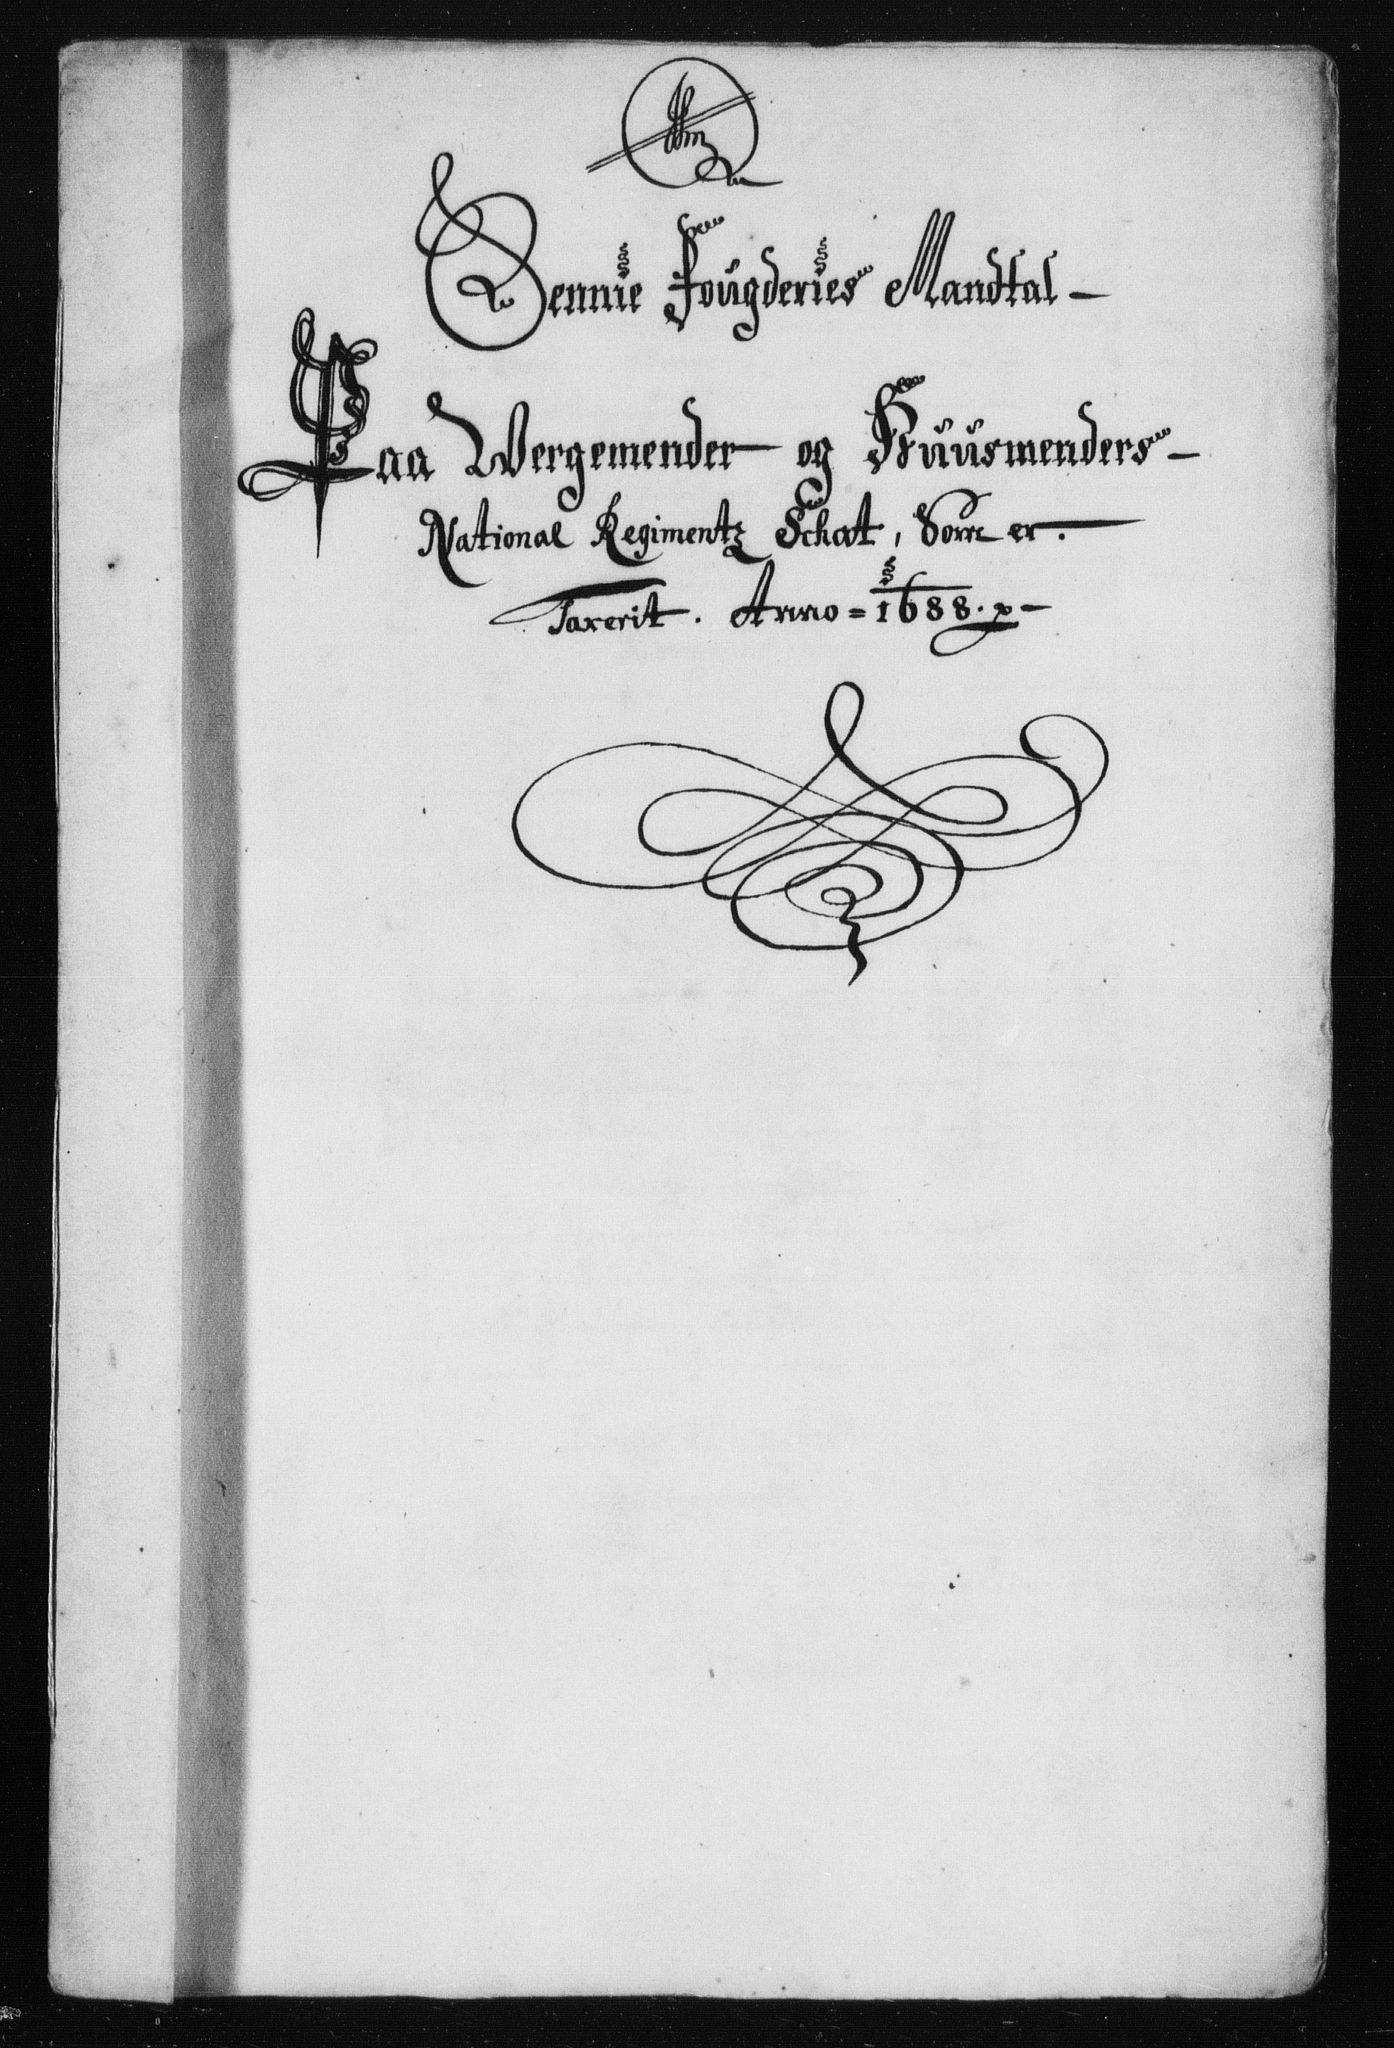 Sennie Fougderies Mandtal
Paa Wergemender og Huusmenders
National Regimentz Schat, Som er.
Taxerit. Anno = 1688.